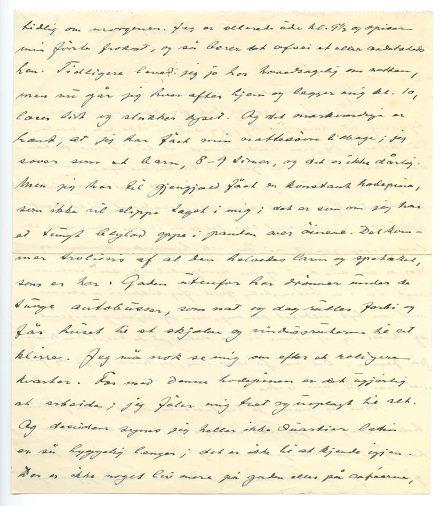 tidlig om morgenen. Jeg er allerede ude kl. 9½ og spiser
min förste frokost, og så bærer det afsted et eller andetsteds
hen. Tidligere levede jeg jo her hovedsagelig om natten,
men nu går jeg hver aften hjem og lægger mig kl. 10,
læser lidt og slukker lyset. Og det mærkværdige er
hændt, at jeg har fået min nattesøvn tilbage; jeg
sover som et barn, 8-9 timer, og det er ikke dårlig.
Men jeg har til gjengjæld fået en konstant hodepine,
som ikke vil slippe taget i mig; det er som om jeg har
et tungt blylod oppe i panden over öinene. Det kom-
mer trolig af al den helvedes larm og spektakel,
som er her. Gaden udenfor her drönner under de
tunge autobusser, som nat og dag ruller forbi og
får huset til at skjælve og vinduesruterne til at
klirre. Jeg må nok se mig om efter et roligere
kvarter. For med denne hodepinen er det ugjörlig
at arbeide; jeg föler mig træt og uoplagt til alt.
Og desuden synes jeg heller ikke Quartier Latin
er så hyggelig længer; det er ikke til at kjende igjen.
Der er ikke noget liv mere på gaden eller på caféerne,